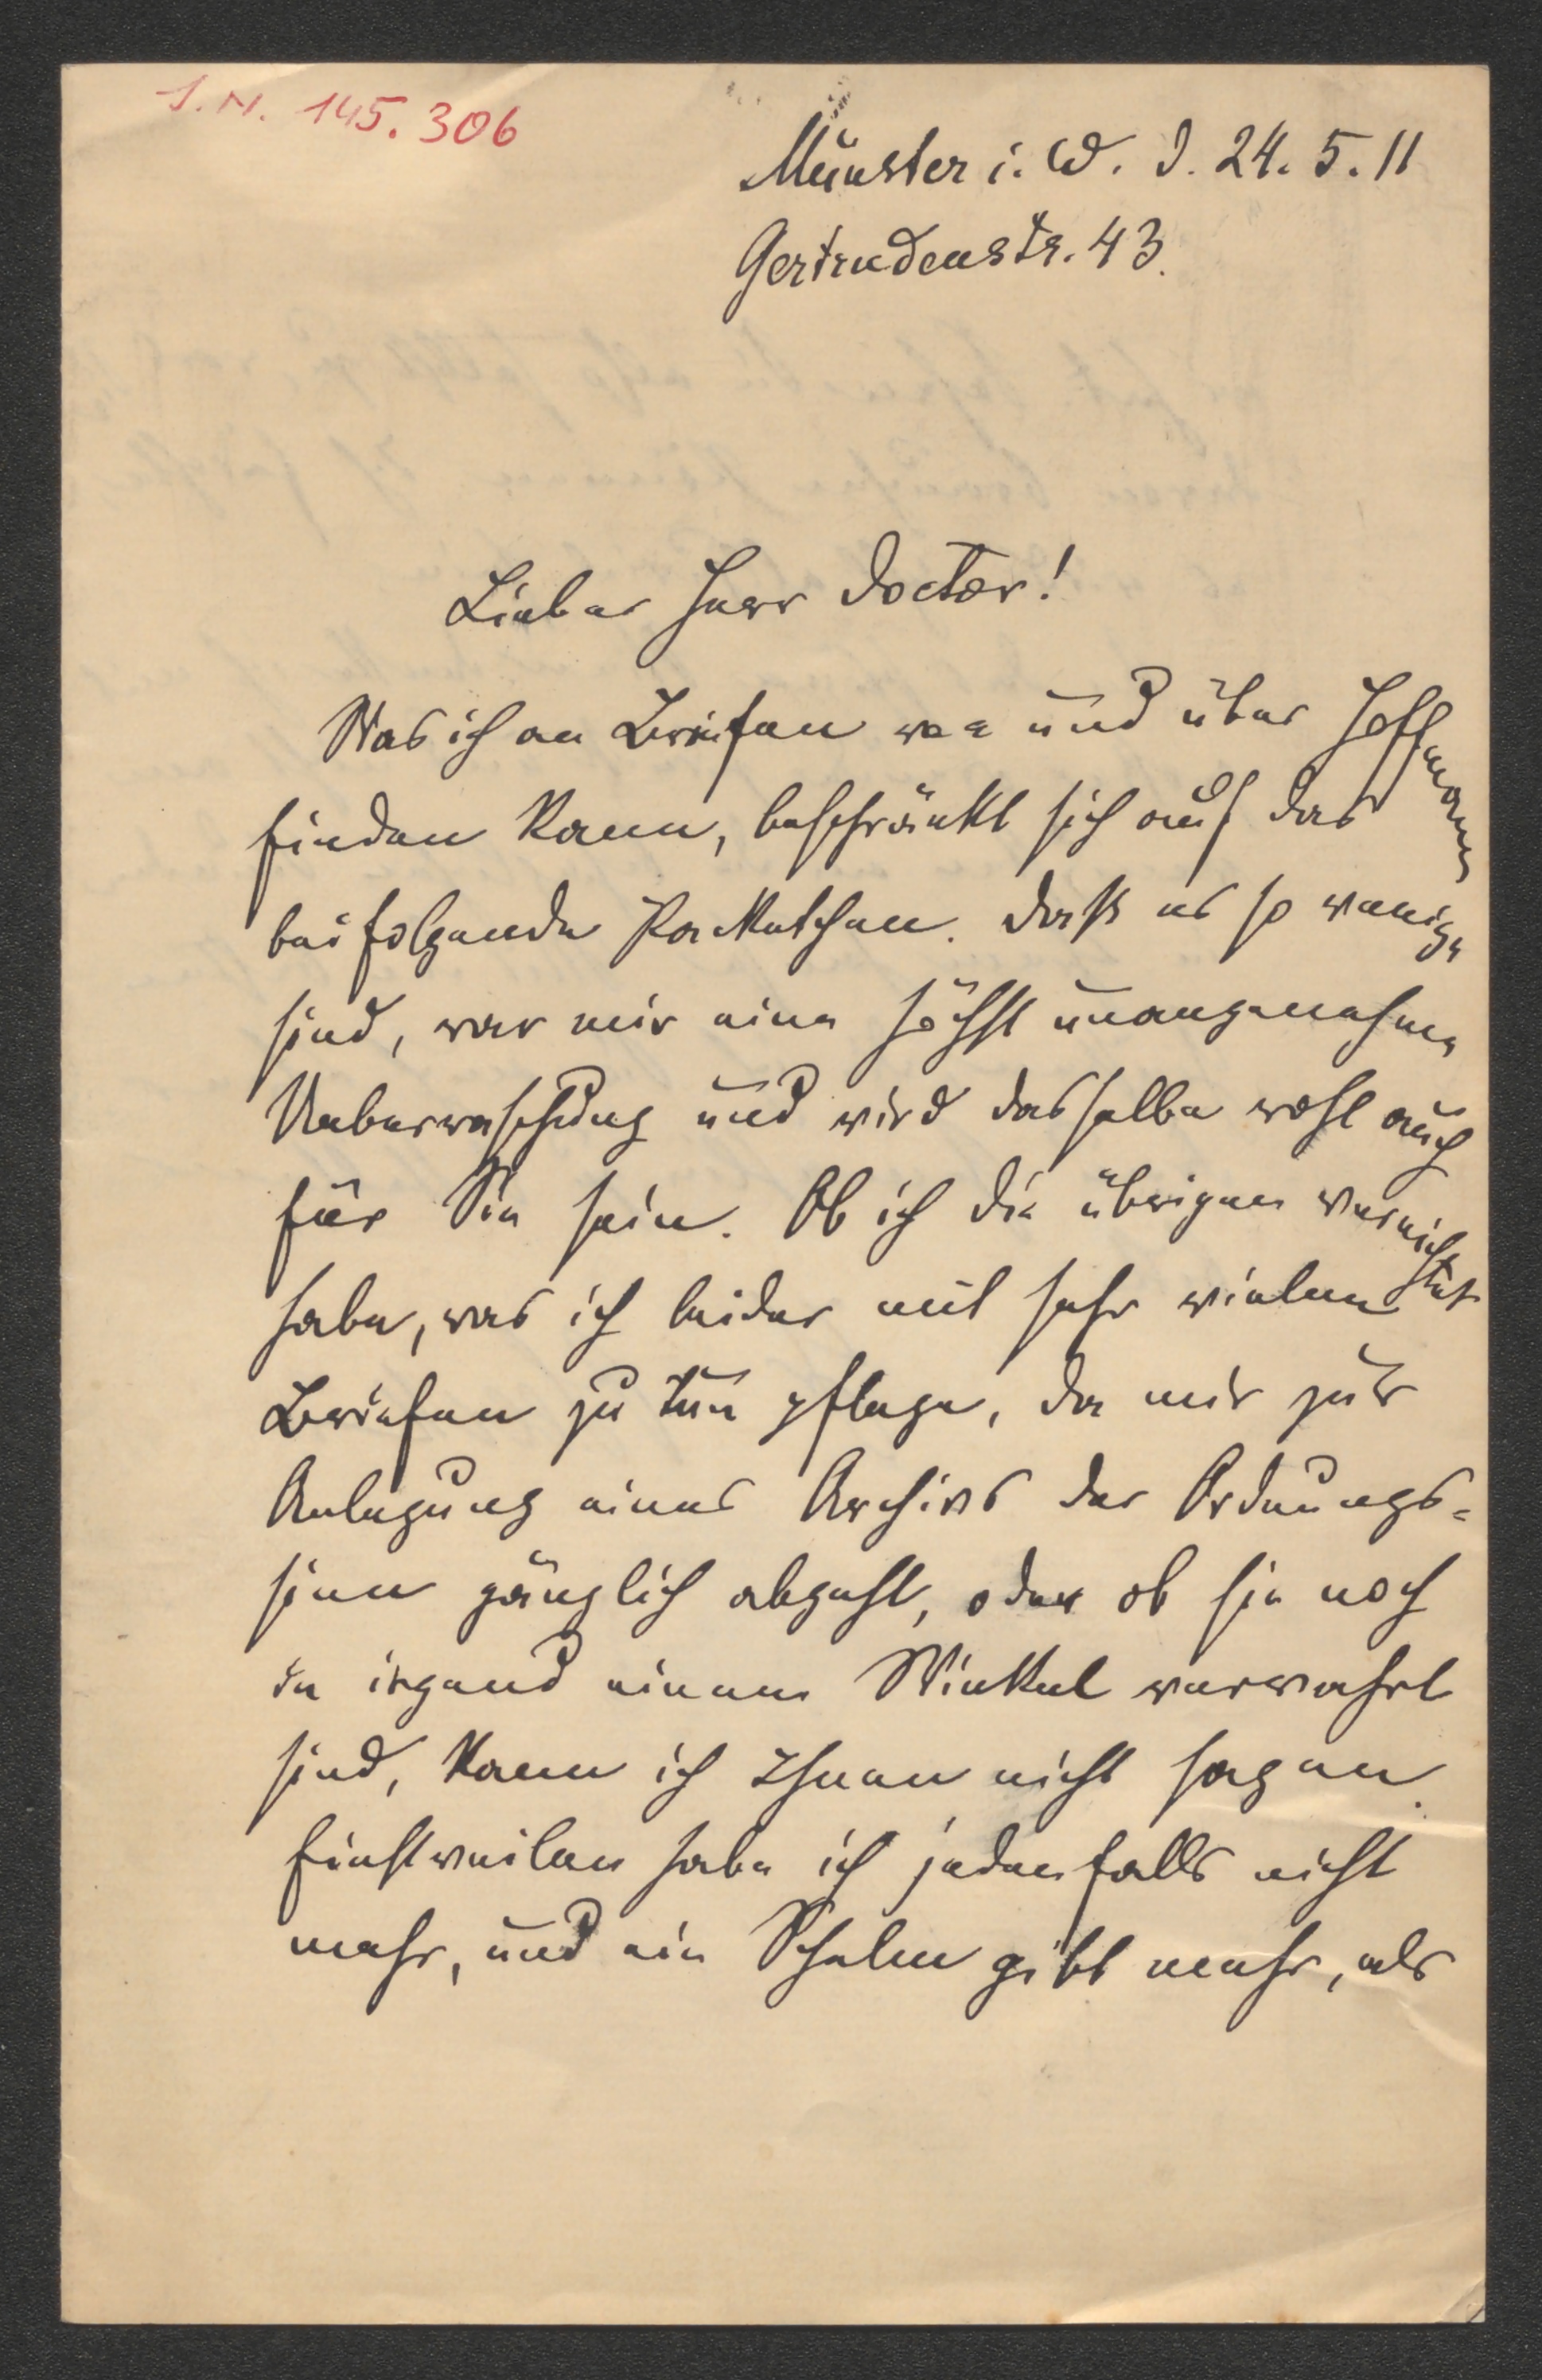 I.N. 145.306
Münster i. W. d. 24. 5. 11
Gertrudenstr. 43.
Lieber Herr Doctor!
Was ich an Briefen von und über Hoffmann
finden kann, beschränkt sich auf das
beifolgende Packetchen. Daß es so wenige
sind, war mir eine höchst unangenehme
Ueberraschung und wird dasselbe wohl auch
für Sie sein. Ob ich die übrigen vernichtet
habe, was ich leider mit sehr vielen
Briefen zu tun pflege, da mir zur
Anlegung eines Archivs der Ordnungs-
sinn gänzlich abgeht, oder ob sie noch
in irgend einem Winkel verwahrt
sind, kann ich Ihnen nicht sagen.
Einstweilen habe ich jedenfalls nicht
mehr, und ein Schelm gibt mehr, als